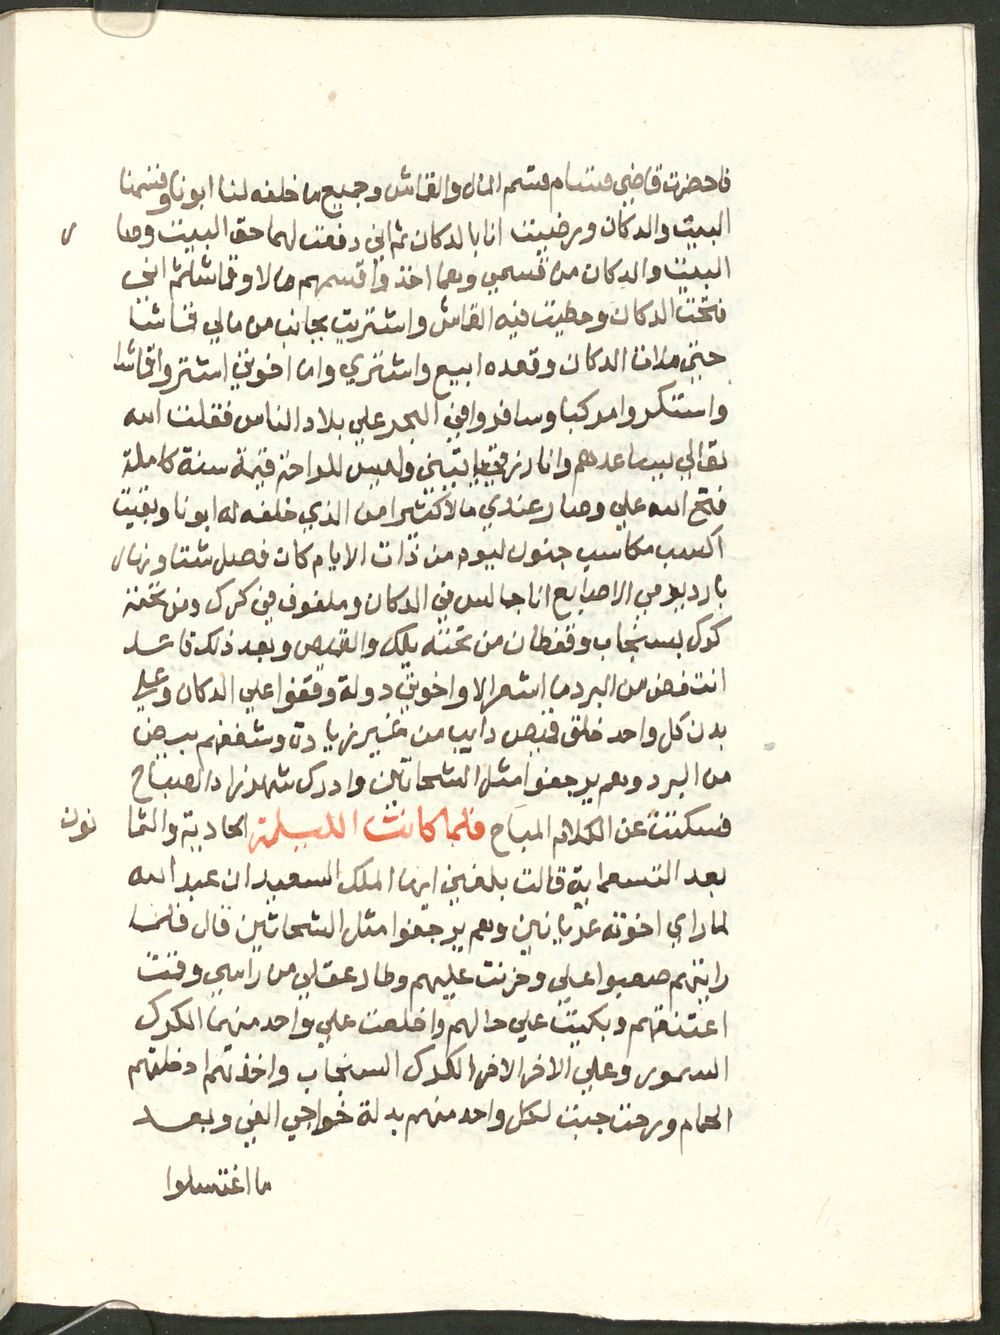 فاحضرت قاضي قسام قسم المال والقماش وجميع ما خلفه لنا ابونا وقسمنا
البيت والدكان ورضيت انا بالدكان ثم اني دفعت لهما حق البيت وصا
ر
البيت والدكان من قسمي وهما اخذوا قسمهم مالا وقماشا ثم اني
فتحت الدكان وحطيت فيه القماش واشتريت بجانب من مالي قماشا
حتي ملات الدكان وقعده ابيع واشتري واما اخوتي اشتروا قماشا
واستكروا مركبا وسافروا في البحر علي بلاد الناس فقلت الله
تعالي يساعدهم وانا رزقي ياتيني وليس للراحة قيمة سنة كاملة
فتح الله علي وصار عندي مالا كثيرا من الذي خلفه له ابونا وبقيت
اكسب مكاسب جزيل ليوم من ذات الايام كان فصل شتا وزمان
بارد يرمي الاصابع انا جالس في الدكان وملفوف في كرك ومن تحته
كرك بسنجاب وقفطان من تحته يلك والقميص وبعد ذلك قاعد
انتفض من البرد ما اشعر الا واخوتي دولة وقفوا علي الدكان وعلي
بدن كل واحد خلق قميص دايب من غير زيادة وشففهم بيض
من البرد وهم يرجفوا مثل الشحاتين وادرك شهرزاد الصباح
فسكتت عن الكلام المباح فلما كانت الليلة الحادية والثما
نون
بعد التسعماية قالت بلغني ايها الملك السعيد ان عبد الله
لما راي اخوته عريانين وهم يرجفوا مثل الشحاتين قال فلما
رايتهم صعبوا علي وحزنت عليهم وطار عقلي من راسي وقمت
اعتنقتهم وبكيت علي حالهم واخلعت علي واحد منهما الكرك
السمور وعلي الاخر الاخر الكرك السنجاب واخذتهم ادخلتهم
الحمام ورحت جبت لكل واحد منهم بدلة خواجي الفي وبعد
ما اغتسلوا